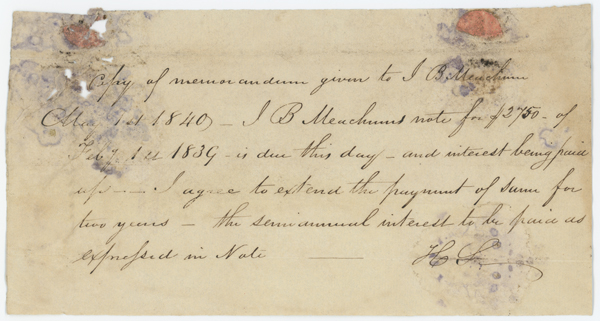 Copy of memorandum given to J B Meachum
1st 1840 — J B Meachums note for $2750 — of
Feby 1st 1839 — is due this day — and interest being paid
up — — I agree to extend the payment of same for
two years — the semi annual interest to be paid as
expressed in Note —